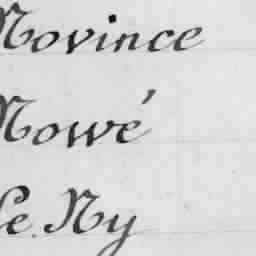 Novince
Nowé
Le Ny